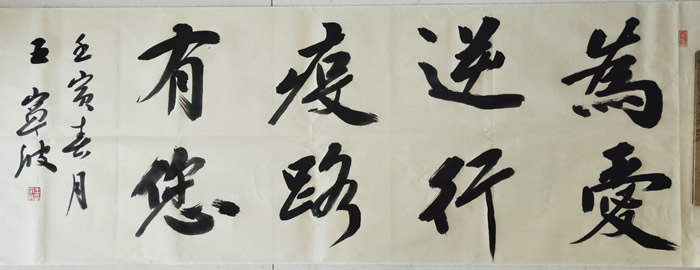 為愛
逆行
疫路
有您
壬寅春月
王寧波